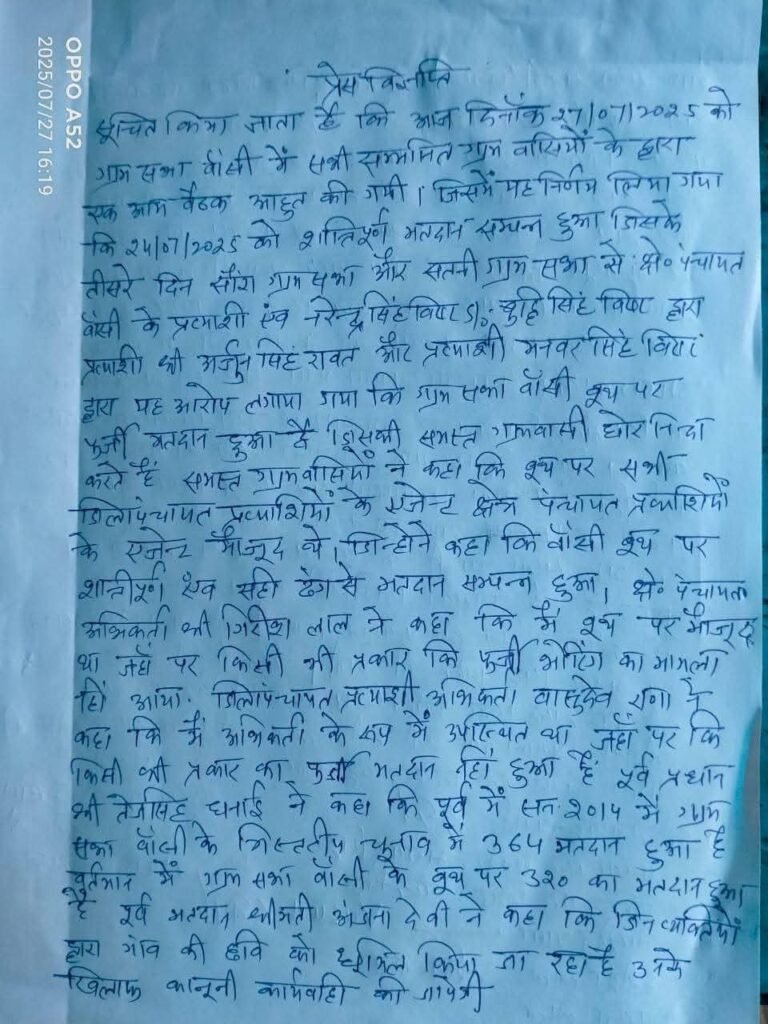 OPPO A52
2025/07/27 16:19
प्रेस विज्ञप्ति
सूचित किया जाता है कि आज दिनाँक 27/07/2025 को
ग्राम सभा वाँसी में सभी सम्मानित ग्राम वासियों के द्वारा
एक आम बैठक आहुत की गयी। जिसमें यह निर्णय लिया गया
कि 24/07/2025 को शान्तिपूर्ण मतदान सम्पन्न हुआ जिसके
तीसरे दिन ग्रामसभा और ग्राम सभा से क्षे० पंचायत
वाँसी के प्रत्याशी एंव नरेन्द्र सिंह विष्ट S/o सिंह विष्ट द्वारा
प्रत्याशी श्री अर्जुन सिंह रावत और प्रत्याशी सिंह विष्ट
द्वारा यह आरोप लगाया गया कि ग्राम सभा वाँसी बूथ पर
फर्जी मतदान हुआ है जिसकी समस्त ग्रामवासी घोर निन्दा
करते हैं समस्त ग्रामवासियों ने कहा कि बूथ पर सभी
जिलापंचायत प्रत्याशियों के एजेन्ट क्षेत्र पंचायत प्रत्याशियों
के एजेन्ट मौजूद थे, जिन्होने कहा कि वाँसी बूथ पर
शान्तीपूर्ण एंव सही ढंग से मतदान सम्पन्न हुआ, क्षे० पंचायत
अभिकर्ता श्री गिरीश लाल ने कहा कि मैं बूथ पर मौजूद
था जहाँ पर किसी भी प्रकार कि फर्जी का मामला
नहिं आया. जिलापंचायत प्रत्याशी अभिकर्ता वासुदेव राणा ने
कहा कि मैं अभिकर्ता के रूप में उपस्थित था जहाँ पर कि
किसी भी प्रकार का फर्जी मतदान नहिं हुआ है पूर्व प्रधान
श्री तेजसिंह धनाई ने कहा कि पूर्व में सन 2014 में ग्राम
सभा वाँसी के चुनाव में 364 मतदान हुआ है
वर्तमान में ग्राम सभा वाँसी के बूथ पर 320 का मतदान हुआ
है पूर्व श्रीमती अंजना देवी ने कहा कि जिन व्यक्तियों
द्वारा गांव की छवि को धूमिल किया जा रहा है उनके
खिलाफ कानूनी कार्यवाही की जायेगी